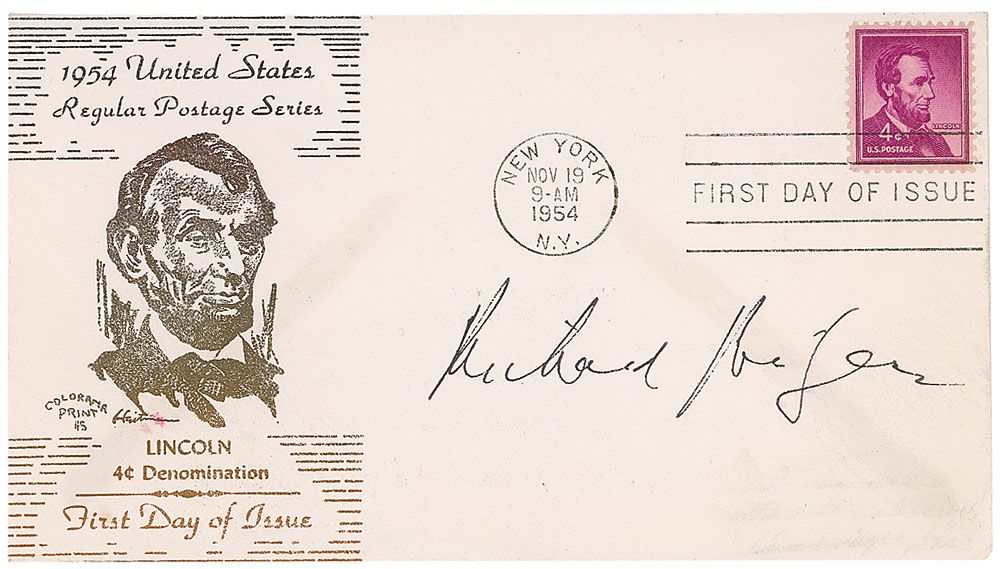 1954 United States
Regular Postage Series
COLORAMA
PRINT
#5
LINCOLN
4¢ Denomination
First Day of Issue
NEW YORK
NOV 19
9-AM
1954
N.Y.
4¢
LINCOLN
U.S. POSTAGE
FIRST DAY OF ISSUE
Richard